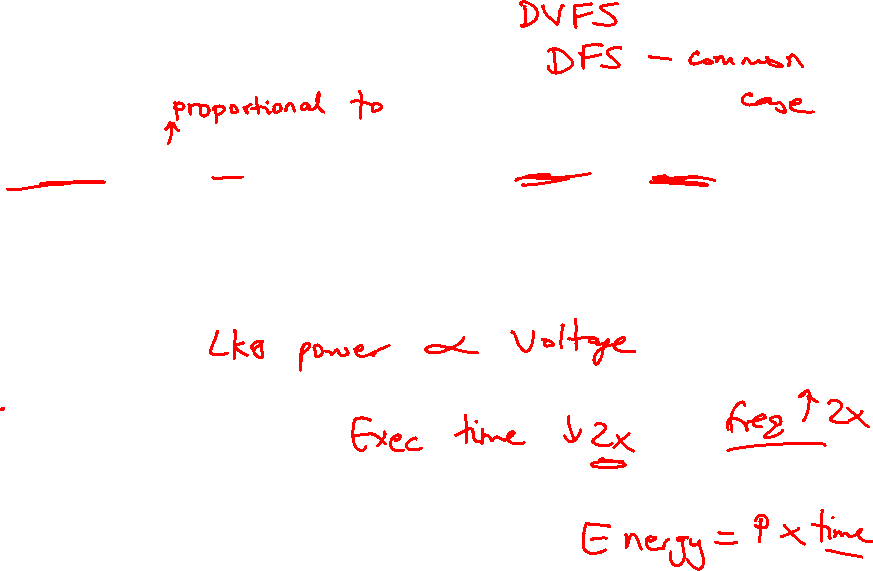 DVFS
DFS - common
case
↑ proportional to
Lkg power ∝ Voltage
Exec time ↓ 2x freq ↑ 2x
Energy = P x time